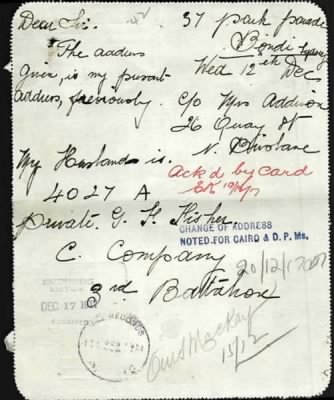 Dear Sir.
37 Park Parade
Bondi Sydney
Wed 12th Dec
The address
given, is my present
address, previously. C/o Mrs Addison
26 Quay St
N. Brisbane
My Husbands is.
Ack'd by card
4027 A
Private. G. F. Fisher
CHANGE OF ADDRESS
NOTED FOR CAIRO & D. P. Ms.
C. Company
20/12/17
3rd Battalion
DEC 17 191
15/12